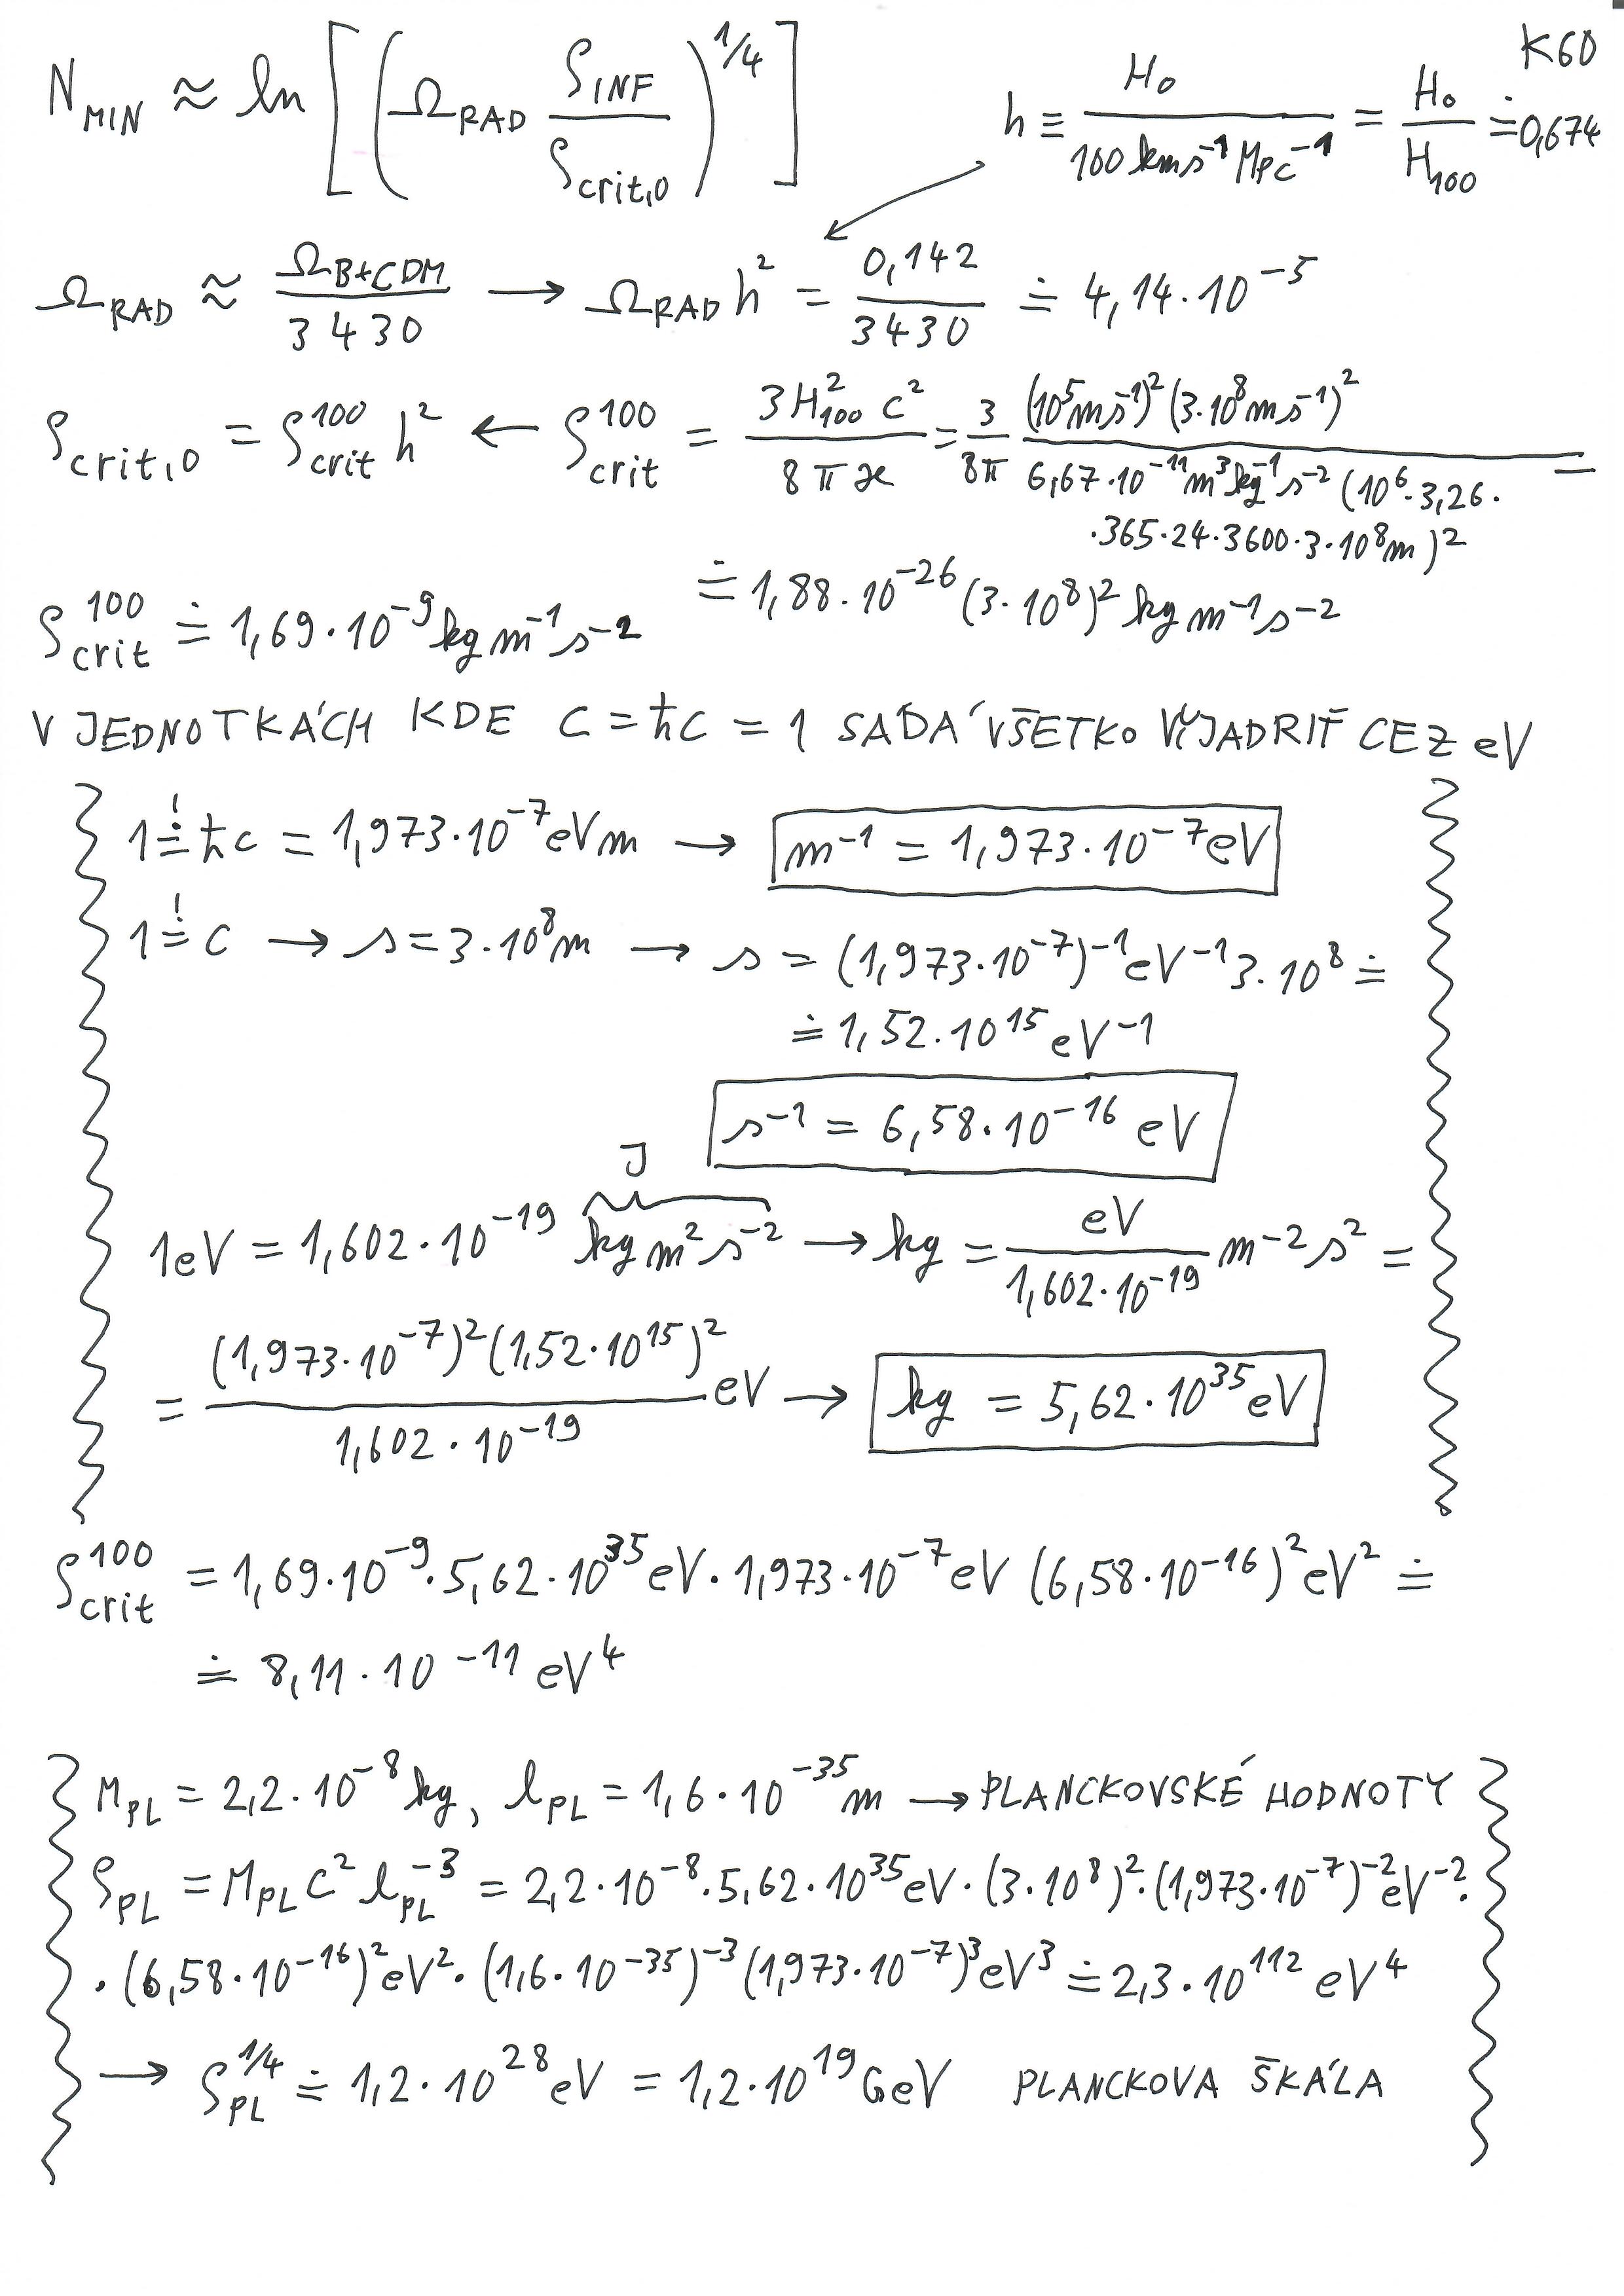 K60
N_MIN ≈ ln [ ( Ω_RAD ρ_INF / ρ_crit,0 )^1/4 ] h ≡ H₀ / 100 km s⁻¹ Mpc⁻¹ = H₀ / H₁₀₀ ≐ 0,674
Ω_RAD ≈ Ω_B+CDM / 3430 → Ω_RAD h² = 0,142 / 3430 ≐ 4,14·10⁻⁵
ρ_crit,0 = ρ_crit^100 h² ← ρ_crit^100 = 3 H₁₀₀² c² / 8πϰ = 3/8π (10⁵ m s⁻¹)² (3·10⁸ m s⁻¹)² / 6,67·10⁻¹¹ m³ kg⁻¹ s⁻² (10⁶·3,26·
·365·24·3600·3·10⁸ m)² =
≐ 1,88·10⁻²⁶ (3·10⁸)² kg m⁻¹ s⁻²
ρ_crit^100 ≐ 1,69·10⁻⁹ kg m⁻¹ s⁻²
V JEDNOTKÁCH KDE c = ħc = 1 SA DÁ VŠETKO VYJADRIŤ CEZ eV
1 ≐! ħc = 1,973·10⁻⁷ eV m → m⁻¹ = 1,973·10⁻⁷ eV
1 =! c → s = 3·10⁸ m → s = (1,973·10⁻⁷)⁻¹ eV⁻¹ 3·10⁸ ≐
≐ 1,52·10¹⁵ eV⁻¹
s⁻¹ = 6,58·10⁻¹⁶ eV
J
1eV = 1,602·10⁻¹⁹ kg m² s⁻² → kg = eV / 1,602·10⁻¹⁹ m⁻² s² =
= (1,973·10⁻⁷)² (1,52·10¹⁵)² / 1,602·10⁻¹⁹ eV → kg = 5,62·10³⁵ eV
ρ_crit^100 = 1,69·10⁻⁹·5,62·10³⁵ eV·1,973·10⁻⁷ eV (6,58·10⁻¹⁶)² eV² ≐
≐ 8,11·10⁻¹¹ eV⁴
M_PL = 2,2·10⁻⁸ kg, l_PL = 1,6·10⁻³⁵ m → PLANCKOVSKÉ HODNOTY
ρ_PL = M_PL c² l_PL⁻³ = 2,2·10⁻⁸·5,62·10³⁵ eV·(3·10⁸)²·(1,973·10⁻⁷)⁻² eV⁻²·
·(6,58·10⁻¹⁶)² eV²·(1,6·10⁻³⁵)⁻³ (1,973·10⁻⁷)³ eV³ ≐ 2,3·10¹¹² eV⁴
→ ρ_PL^1/4 ≐ 1,2·10²⁸ eV = 1,2·10¹⁹ GeV PLANCKOVA ŠKÁLA